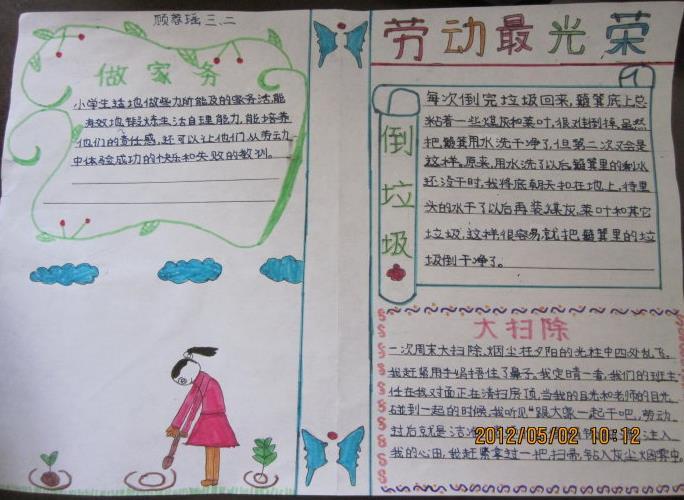 顾蓉瑶 三、二
劳动最光荣
做家务
小学生适地做些力所能及的家务活,能
有效地锻炼生活自理能力,能培养
他们的责任感,还可以让他们从劳动
中体验成功的快乐和失败的教训。
倒垃圾
每次倒完垃圾回来,簸箕底上总
粘着一些煤灰和菜叶,很难倒掉,虽然
把簸箕用水洗干净了,但第二次又会是
这样。原来,用水洗了以后,簸箕里的剩水
还没干时,我将底朝天扣在地上,待里
头的水干了以后再装煤灰,菜叶和其它
垃圾,这样很容易就把簸箕里的垃
圾倒干净了。
大扫除
一次周末大扫除,烟尘在夕阳的光柱中四处乱飞,
我赶紧用手绢捂住了鼻子。我定晴一看,我们的班主
任在我对面正在清扫房顶,当我的目光和老师的目光
碰到一起的时候,我听见“跟大家一起干吧,劳动
过后就是洁净
注入
我的心田,我赶紧拿过一把扫帚,钻入灰尘烟雾中。
2012/05/02 10:12